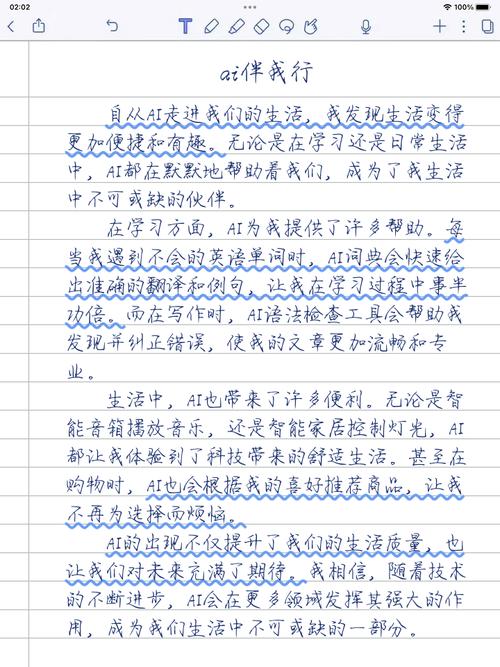 02:02
100%
ai伴我行
自从AI走进我们的生活，我发现生活变得
更加便捷和有趣。无论是在学习还是日常生活
中，AI都在默默地帮助着我们，成为了我生活
中不可或缺的伙伴。
在学习方面，AI为我提供了许多帮助。每
当我遇到不会的英语单词时，AI词典会快速给
出准确的翻译和例句，让我在学习过程中事半
功倍。而在写作时，AI语法检查工具会帮助我
发现并纠正错误，使我的文章更加流畅和专
业。
生活中，AI也带来了许多便利。无论是智
能音箱播放音乐，还是智能家居控制灯光，AI
都让我体验到了科技带来的舒适生活。甚至在
购物时，AI也会根据我的喜好推荐商品，让我
不再为选择而烦恼。
AI的出现不仅提升了我们的生活质量，也
让我们对未来充满了期待。我相信，随着技术
的不断进步，AI会在更多领域发挥其强大的作
用，成为我们生活中不可或缺的一部分。